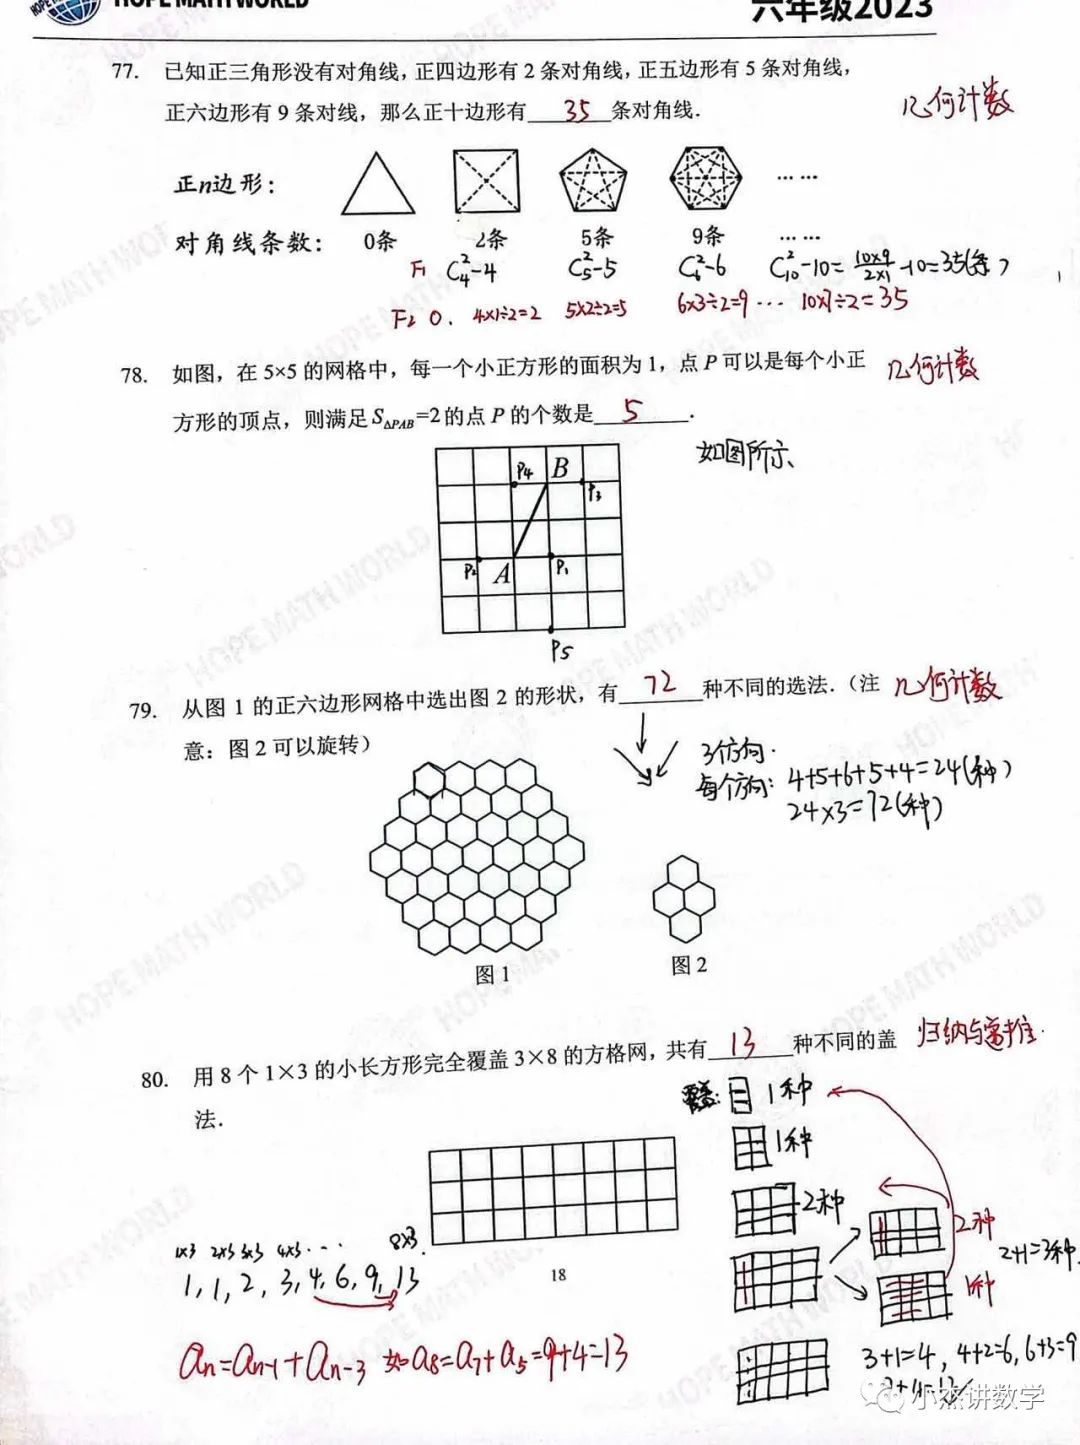 HOPE MATH WORLD
六年级2023
77. 已知正三角形没有对角线，正四边形有 2 条对角线，正五边形有 5 条对角线，
正六边形有 9 条对线，那么正十边形有 35 条对角线．
几何计数
正n边形：
……
对角线条数： 0条 2条 5条 9条 ……
F₁ C₄²-4 C₅²-5 C₆²-6 C₁₀²-10=10×9/2×1-10=35(条)
F₂ 0. 4×1÷2=2 5×2÷2=5 6×3÷2=9 … 10×7÷2=35
78. 如图，在 5×5 的网格中，每一个小正方形的面积为 1，点 P 可以是每个小正
几何计数
方形的顶点，则满足 S△PAB=2 的点 P 的个数是 5 ．
如图所示
P₄ B P₃
P₂ A P₁
P₅
79. 从图 1 的正六边形网格中选出图 2 的形状，有 72 种不同的选法．（注
几何计数
意：图 2 可以旋转）
3个方向.
每个方向: 4+5+6+5+4=24(种)
24×3=72(种)
图 1
图 2
80. 用 8 个 1×3 的小长方形完全覆盖 3×8 的方格网，共有 13 种不同的盖
归纳与递推
法．
覆盖: 1种
1种
2种
2种
2+1=3种
1种
1×3 2×3 3×3 4×3 … 8×3.
1, 1, 2, 3, 4, 6, 9, 13
18
aₙ=aₙ₋₁+aₙ₋₃ 如a₈=a₇+a₅=9+4=13
3+1=4, 4+2=6, 6+3=9
小杰讲数学